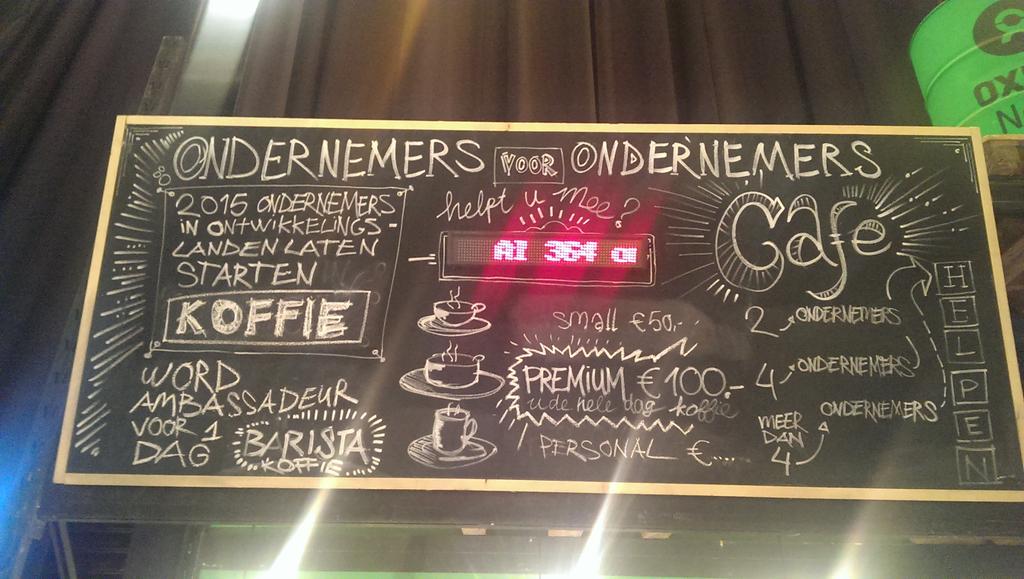 ONDERNEMERS VOOR ONDERNEMERS
2015 ONDERNEMERS
IN ONTWIKKELINGS-
LANDEN LATEN
STARTEN
KOFFIE
WORD
AMBASSADEUR
VOOR 1
DAG
BARISTA
KOFFIE
helpt u mee?
AI 364 on
small €50,-
PREMIUM €100,-
u de hele dag koffie
PERSONAL €.....
Cafe
2 ONDERNEMERS
4 ONDERNEMERS
MEER
DAN
4
ONDERNEMERS
HELPEN
OX
N